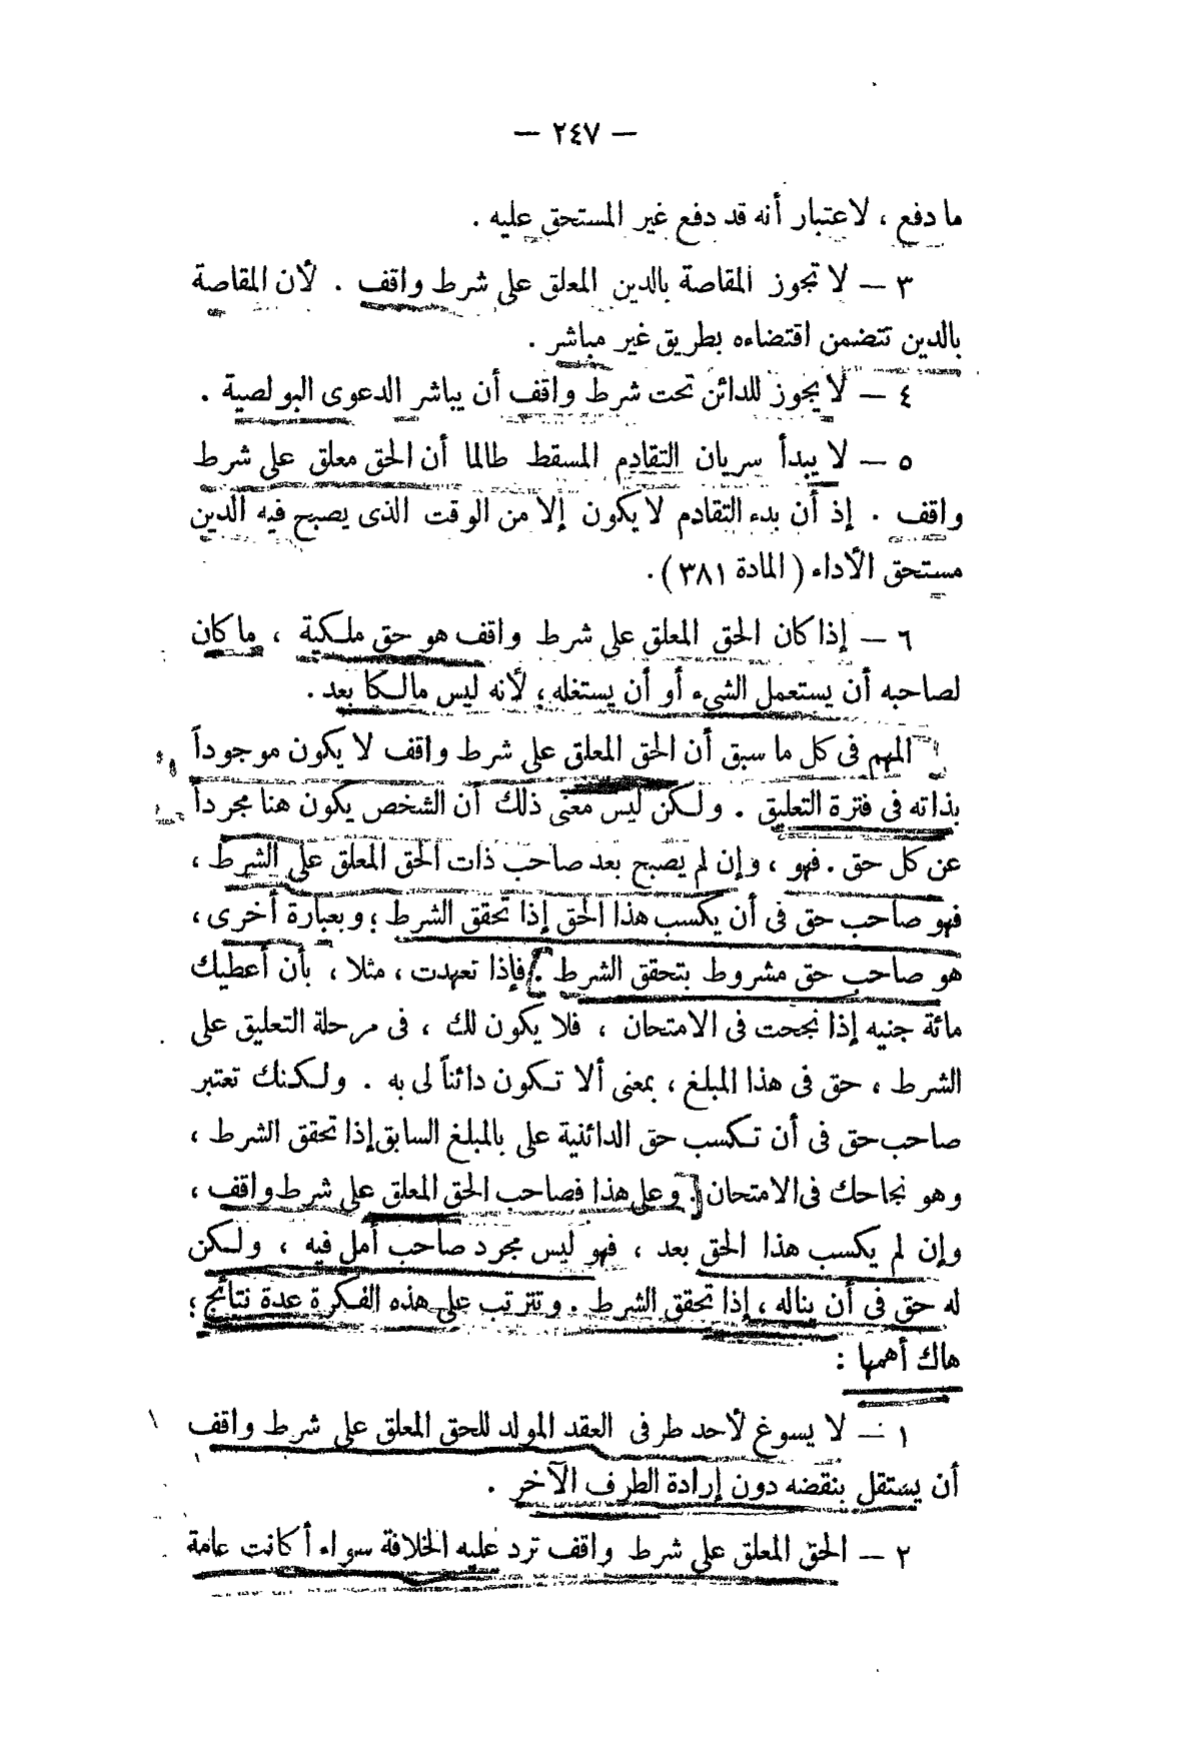 — ٢٤٧ —
ما دفع ، لاعتبار أنه قد دفع غير المستحق عليه .
٣ — لا تجوز المقاصة بالدين المعلق على شرط واقف . لأن المقاصة
بالدين تتضمن اقتضاءه بطريق غير مباشر .
٤ — لا يجوز للدائن تحت شرط واقف أن يباشر الدعوى البولصية .
٥ — لا يبدأ سريان التقادم المسقط طالما أن الحق معلق على شرط
واقف . إذ أن بدء التقادم لا يكون إلا من الوقت الذى يصبح فيه الدين
مستحق الأداء ( المادة ٣٨١ ) .
٦ — إذا كان الحق المعلق على شرط واقف هو حق ملكية ، ما كان
لصاحبه أن يستعمل الشىء أو أن يستغله ، لأنه ليس مالكا بعد .
المهم فى كل ما سبق أن الحق المعلق على شرط واقف لا يكون موجوداً
بذاته فى فترة التعليق . ولكن ليس معنى ذلك أن الشخص يكون هنا مجرداً
عن كل حق . فهو ، وإن لم يصبح بعد صاحب ذات الحق المعلق على الشرط ،
فهو صاحب حق فى أن يكسب هذا الحق إذا تحقق الشرط ؛ وبعبارة أخرى ،
هو صاحب حق مشروط بتحقق الشرط . فإذا تعهدت ، مثلا ، بأن أعطيك
مائة جنيه إذا نجحت فى الامتحان ، فلا يكون لك ، فى مرحلة التعليق على
الشرط ، حق فى هذا المبلغ ، بمعنى ألا تكون دائناً لى به . ولكنك تعتبر
صاحب حق فى أن تكسب حق الدائنية على بالمبلغ السابق إذا تحقق الشرط ،
وهو نجاحك فى الامتحان . وعلى هذا فصاحب الحق المعلق على شرط واقف ،
وإن لم يكسب هذا الحق بعد ، فهو ليس مجرد صاحب أمل فيه ، ولكن
له حق فى أن يناله ، إذا تحقق الشرط . وتترتب على هذه الفكرة عدة نتائج ؛
هاك أهمها :
١ — لا يسوغ لأحد طرفى العقد المولد للحق المعلق على شرط واقف
أن يستقل بنقضه دون إرادة الطرف الآخر .
٢ — الحق المعلق على شرط واقف ترد عليه الخلافة سواء أكانت عامة